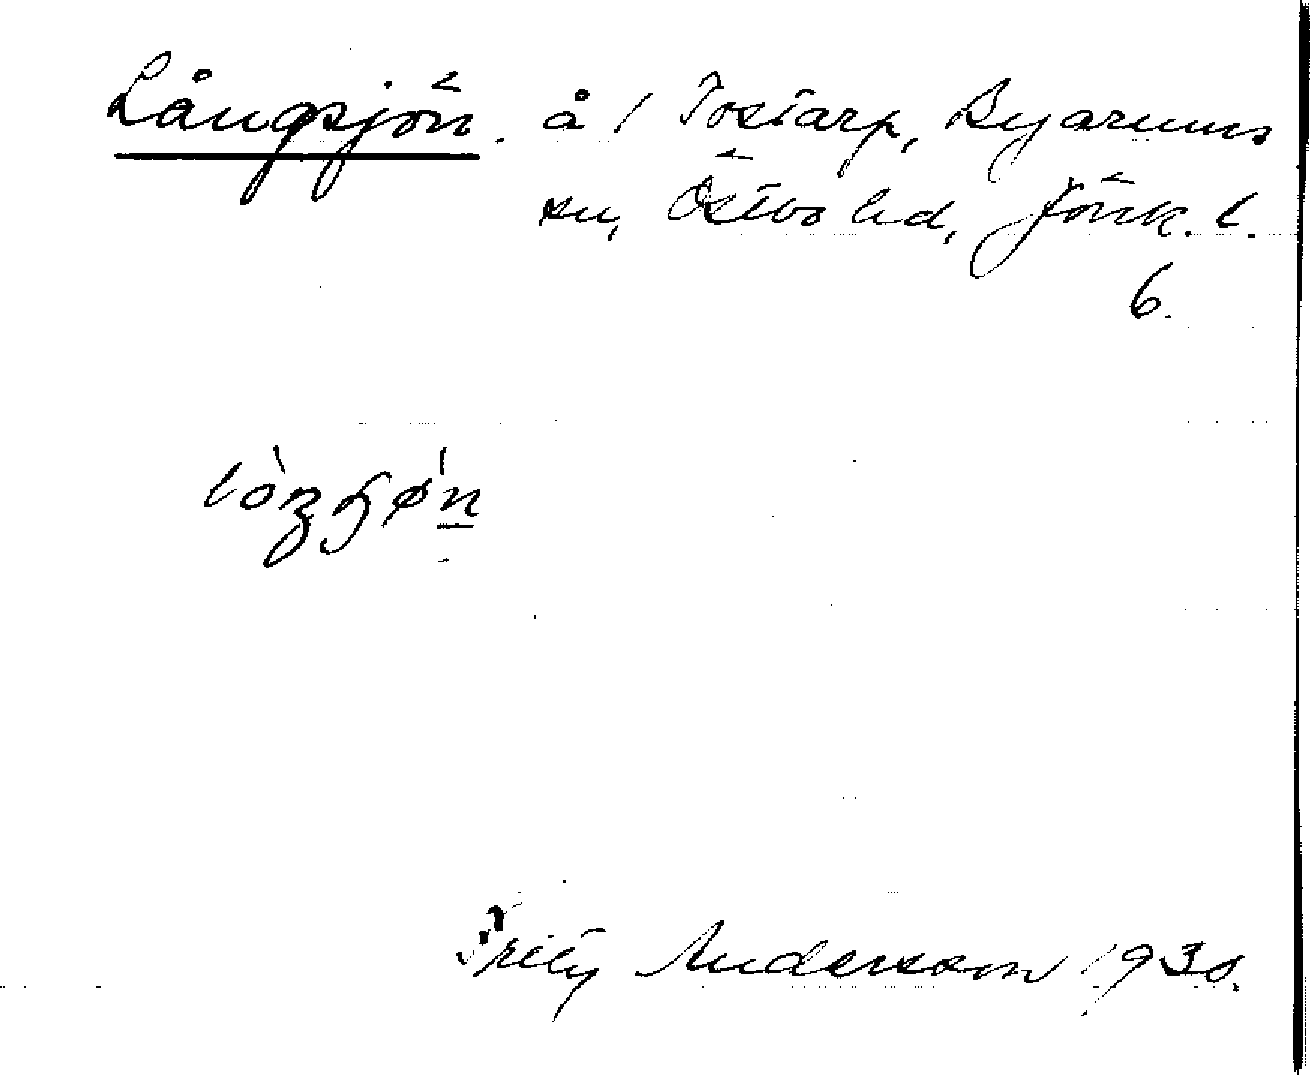 Långsjön. å / Tostarp, Byarums
sn, Östbo hd, Jönk. l.
6.
Fritz Andersson 1930.